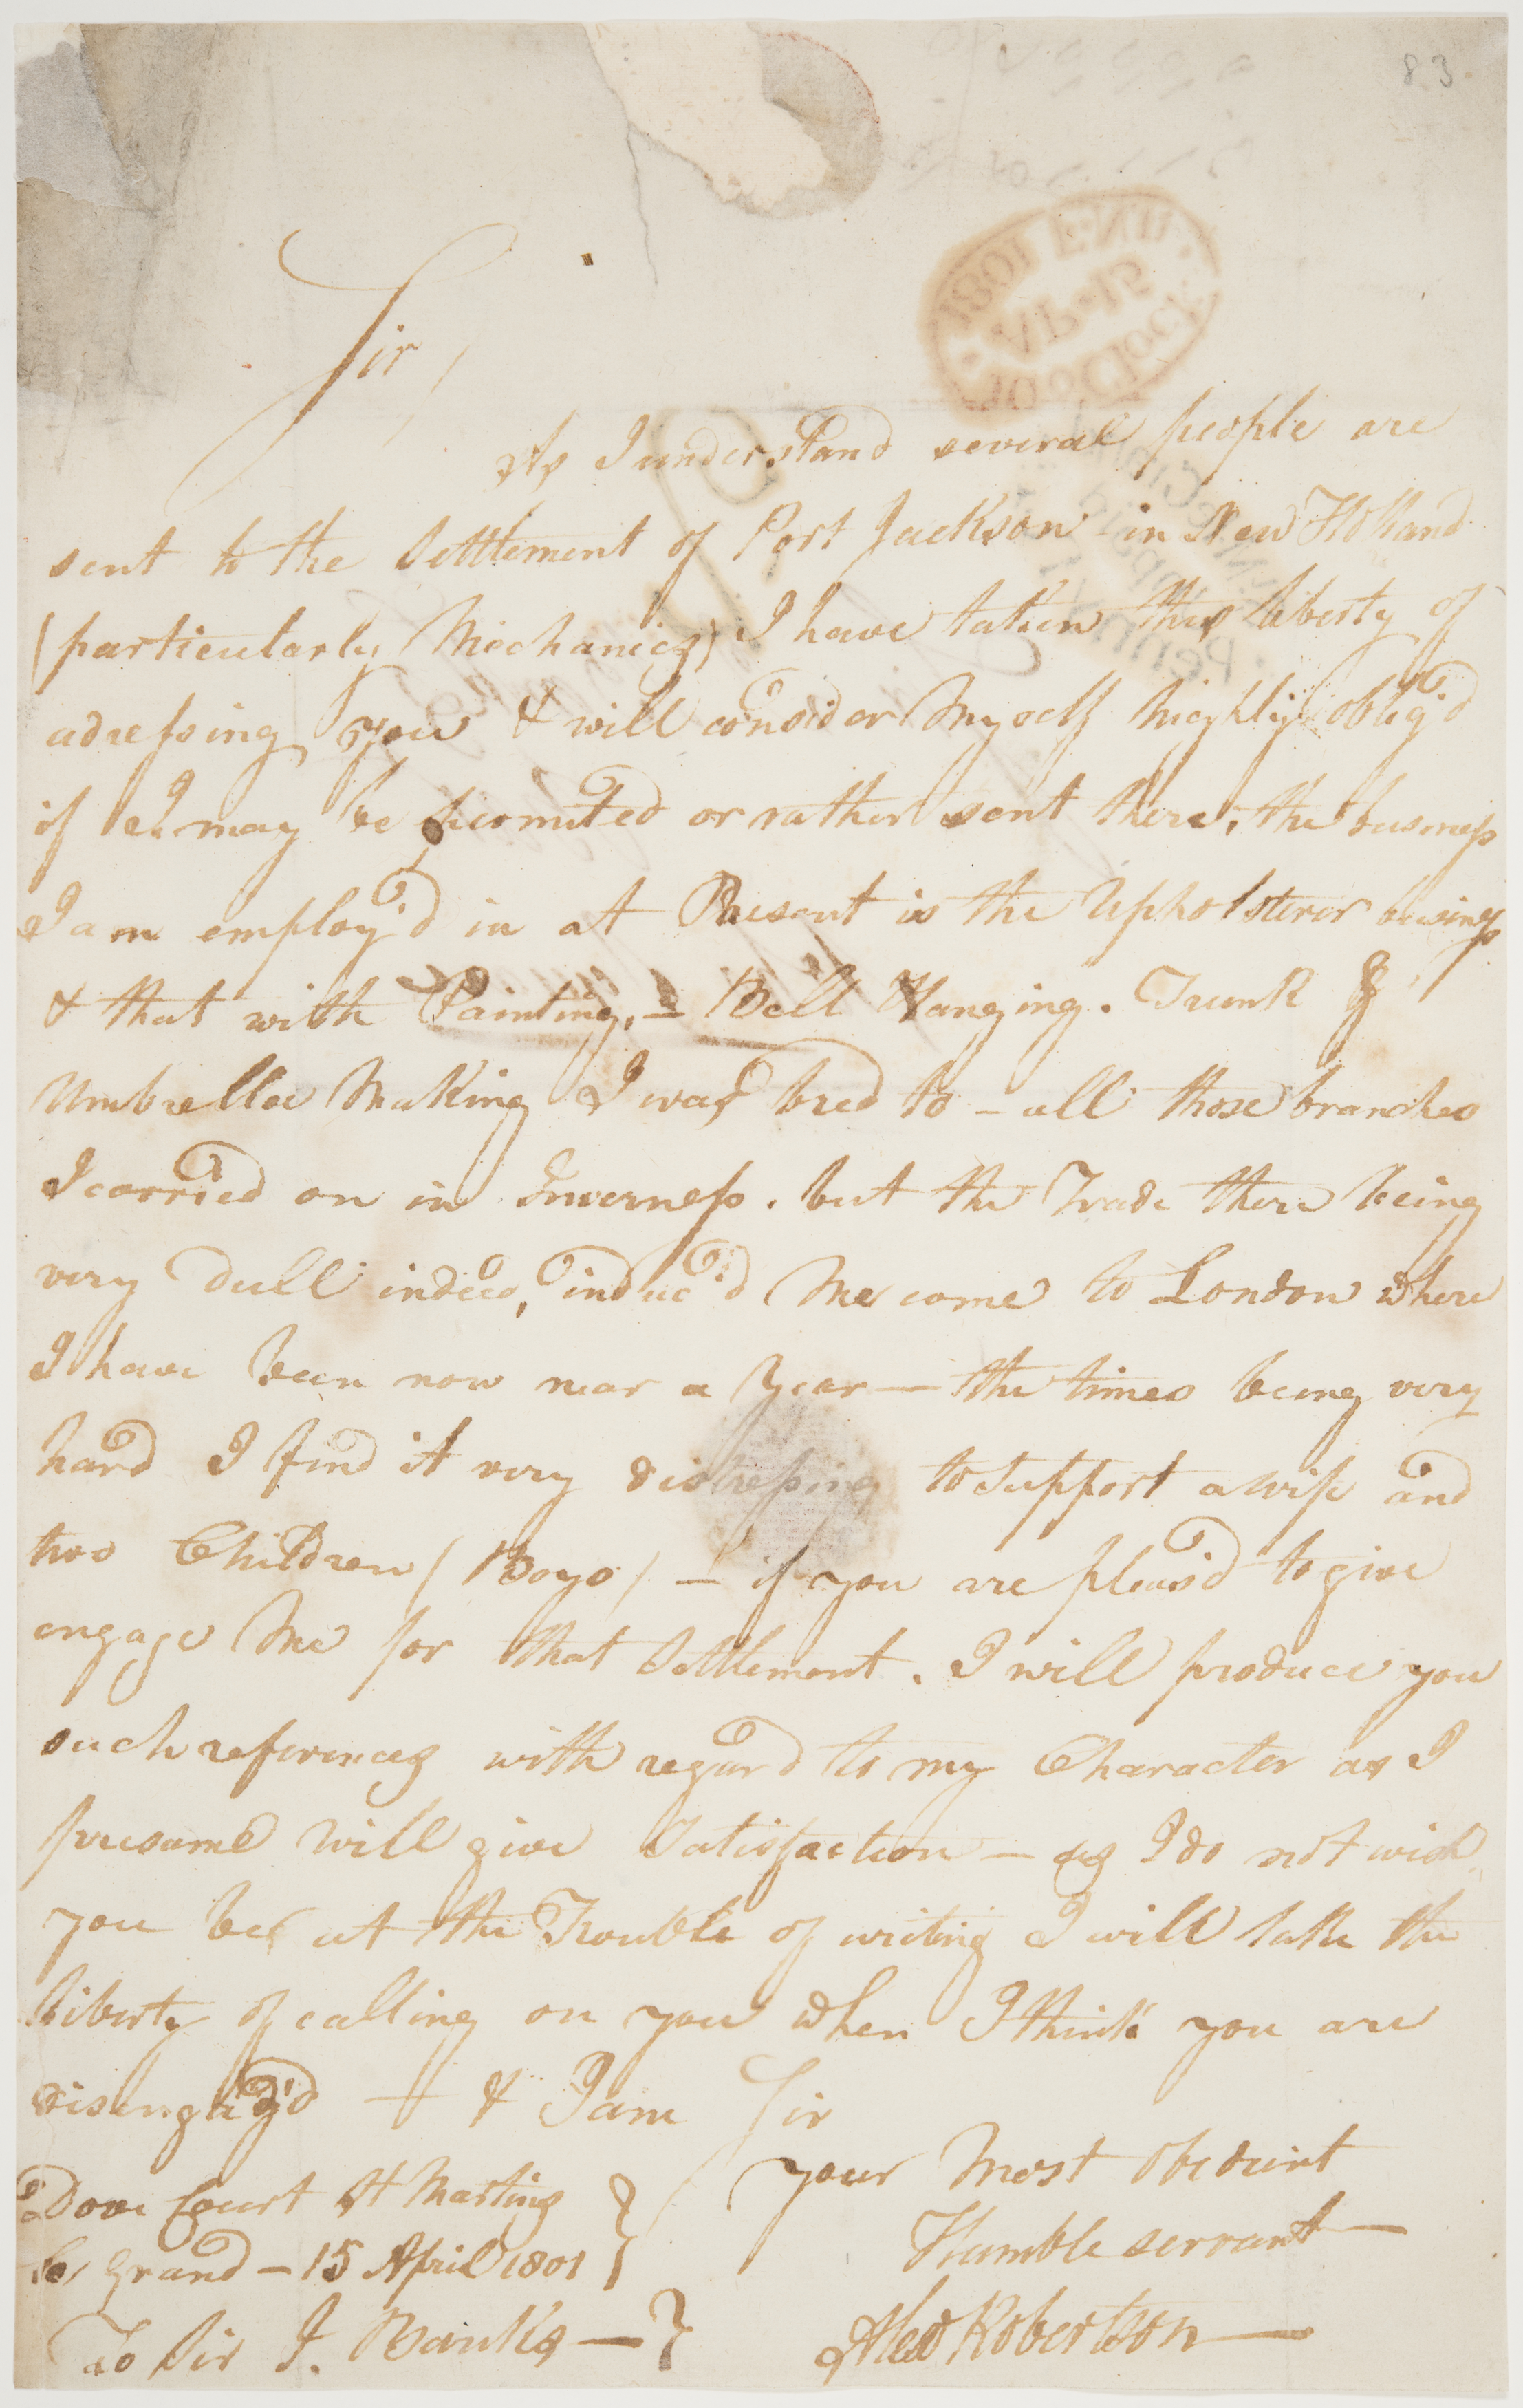 83
Sir,
As I understand several people are
sent to the Settlement of Port Jackson in New Holland
(particularly Mechanics) I have taken this liberty of
adressing you & will consider Myself highly oblig'd
if I may be permited or rather sent there, the business
I am employ'd in at Present is the Upholsterer business
& that with Painting, - Bell Hanging. Trunk &
Umbrella Making I was bred to - all those branches
I carried on in Inverness. but the Trade there being
very Dull indeed, induc'd Me come to London where
I have been now near a Year — the times being very
hard I find it very distressing to support a wife and
two Children (Boys) — if you are pleas'd to give
engage Me for that Settlement. I will produce you
such references with regard to my Character as I
presume will give Satisfaction — as I do not wish
you be at the Trouble of writing I will take the
liberty of calling on you when I think you are
disengag'd — & I am Sir
your Most Obedient
Humble servant —
Alex Robertson —
Dove Court St Martins
Le Grand — 15 April 1801
To Sir J. Banks —
1801 F.NN
AP.15
10 o'Clock